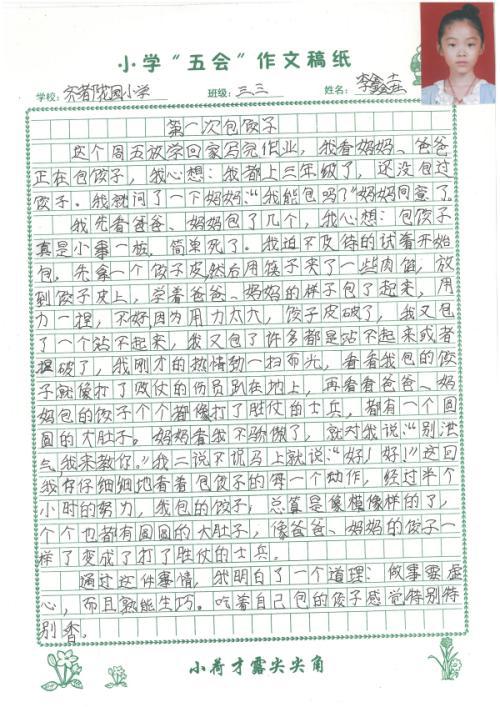 小学“五会”作文稿纸
学校：龙园小学 班级：三、三 姓名：李
第一次包饺子
这个周五放学回家写完作业，我看妈妈、爸爸
正在包饺子，我心想：我都上三年级了，还没包过
饺子。我就问了一下妈妈：“我能包吗？”妈妈同意了。
我先看爸爸、妈妈包了几个，我心想：包饺子
真是小事一桩，简单死了。我迫不及待的试着开始
包，先拿一个饺子皮，然后用筷子夹了一些肉馅，放
到饺子皮上，学着爸爸、妈妈的样子包了起来，用
力一捏，不好，因为用力太大，饺子皮破了，我又包
了一个站不起来，我又包了许多都是站不起来或者
捏破了，我刚才的热情劲一扫而光，看看我包的饺
子就像打了败仗的伤员趴在地上，再看看爸爸、妈
妈包的饺子个个都像打了胜仗的士兵，都有一个圆
圆的大肚子。妈妈看我不骄傲了，就对我说：“别泄
气，我来教你。”我二说不说马上就说：“好！好！”这回
我仔仔细细地看着包饺子的每一个动作，经过半个
小时的努力，我包的饺子，总算是像模像样的了，
个个也都有圆圆的大肚子，像爸爸、妈妈的饺子一
样了变成了打了胜仗的士兵。
通过这件事情，我明白了一个道理：做事要虚
心，而且熟能生巧。吃着自己包的饺子感觉特别特
别香。
小荷才露尖尖角